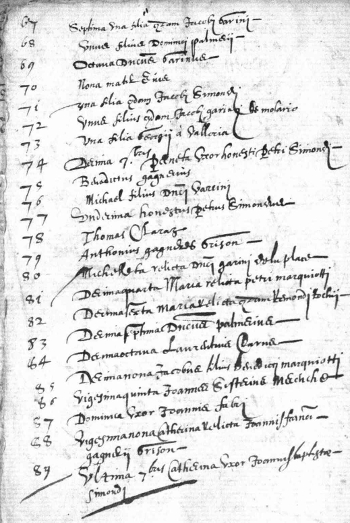 67 Septima una filia qdam Jacobi Garini
68 Unus filius Dominici palmerij
69 Octava Ducus Garinus
70 Nona mater eius
71 una filia qdam Jacobi Simondi
72 Unus filius qdam Jacobi garini de molario
73 Una filia a Valloria
74 Decima 7.bris Perneta Uxor honesti Petri Simondi
75 Benedictus gagnerius
76 Michael filius Dnici Garini
77 Underima honestus Petrus Simondus
78 Thomas Claraz
79 Anthonius gagnerus Grison
80 Micheleta relicta Dnci garini de la place
81 Decimaquarta Maria relicta petri marquiotti
82 Decimasexta Maria relicta qdam
83 Decimaseptima Ducus palmerius
84 Decimaoctava Laurentius Clarus
85 Decimanona Jacobus filius Benedicti marquiotti
86 Vigesimaquinta Joannes Sisterius Meichel
87 Dominica Uxor Joannis fabri
88 Vigesimanona Catherina Relicta Joannis
gagnerij Grison
89 Ultima 7.bris Catherina Uxor Joannis baptistae
Simondi